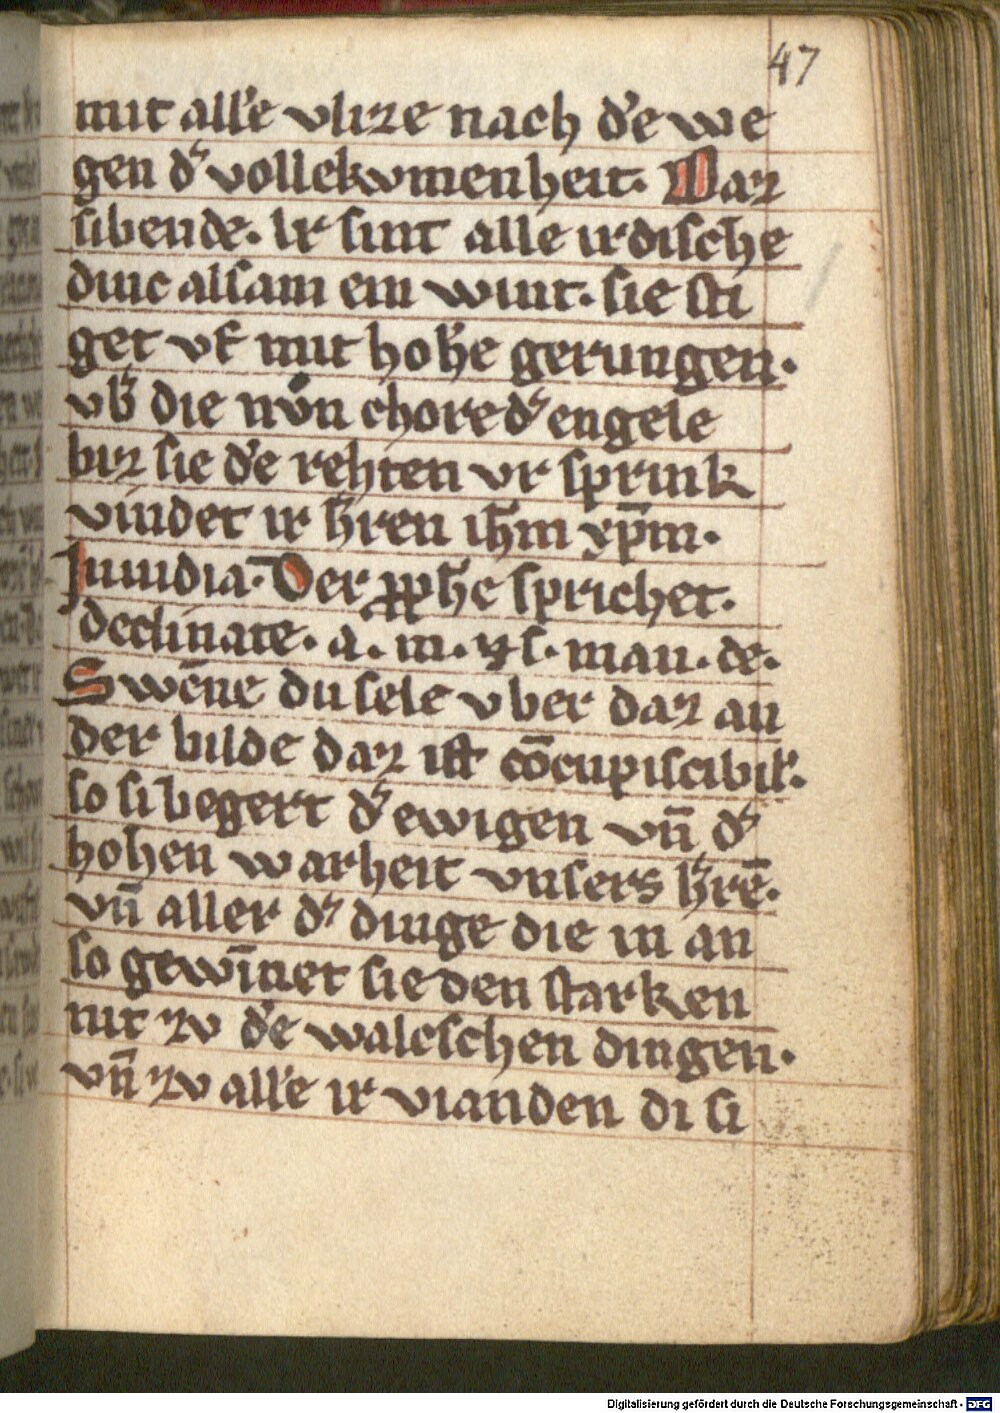 47
mit all'e vlize nach d'e we
gen d' vollekvmenheit. Daz
sibende. Ir sint alle irdische
dinc alsam ein wint. sie sti
get vf mit hoh'e gerungen.
vb' die nvͦn chore d' engele
biz sie d'e rehten vr sprink
vindet ir h'ren ih̄m xp̄m.
Inuidia. Der pp̄he sprichet.
declinate. a. m. ⁊ s. man. de.
Swēne du sele vber daz an
der bilde daz ist cōcupiscibil'.
so si begert d' ewigen vn̄ d'
hohen warheit vnsers h'rē.
vn̄ aller d' dinge die in an
so gewīnet sie den starken
nit zv d'e walcschen dingen.
vn̄ zv all'e ir vianden di si
Digitalisierung gefördert durch die Deutsche Forschungsgemeinschaft - DFG